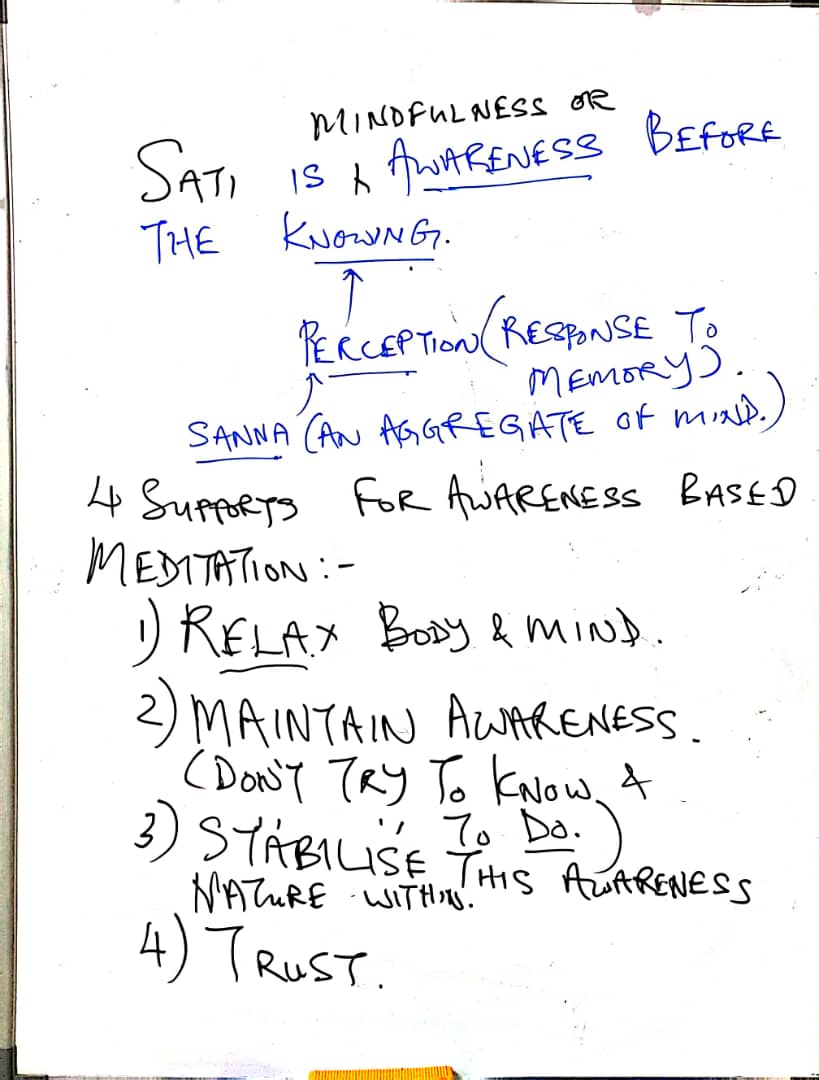 MINDFULNESS OR
SATI IS ⅄ AWARENESS BEFORE
THE KNOWING.
PERCEPTION (RESPONSE TO
MEMORY).
SANNA (AN AGGREGATE OF MIND.)
4 SUPPORTS FOR AWARENESS BASED
MEDITATION :-
1) RELAX BODY & MIND.
2) MAINTAIN AWARENESS.
(DON'T TRY TO KNOW &
" TO DO.)
3) STABILISE THIS AWARENESS
NATURE WITHIN.
4) TRUST.